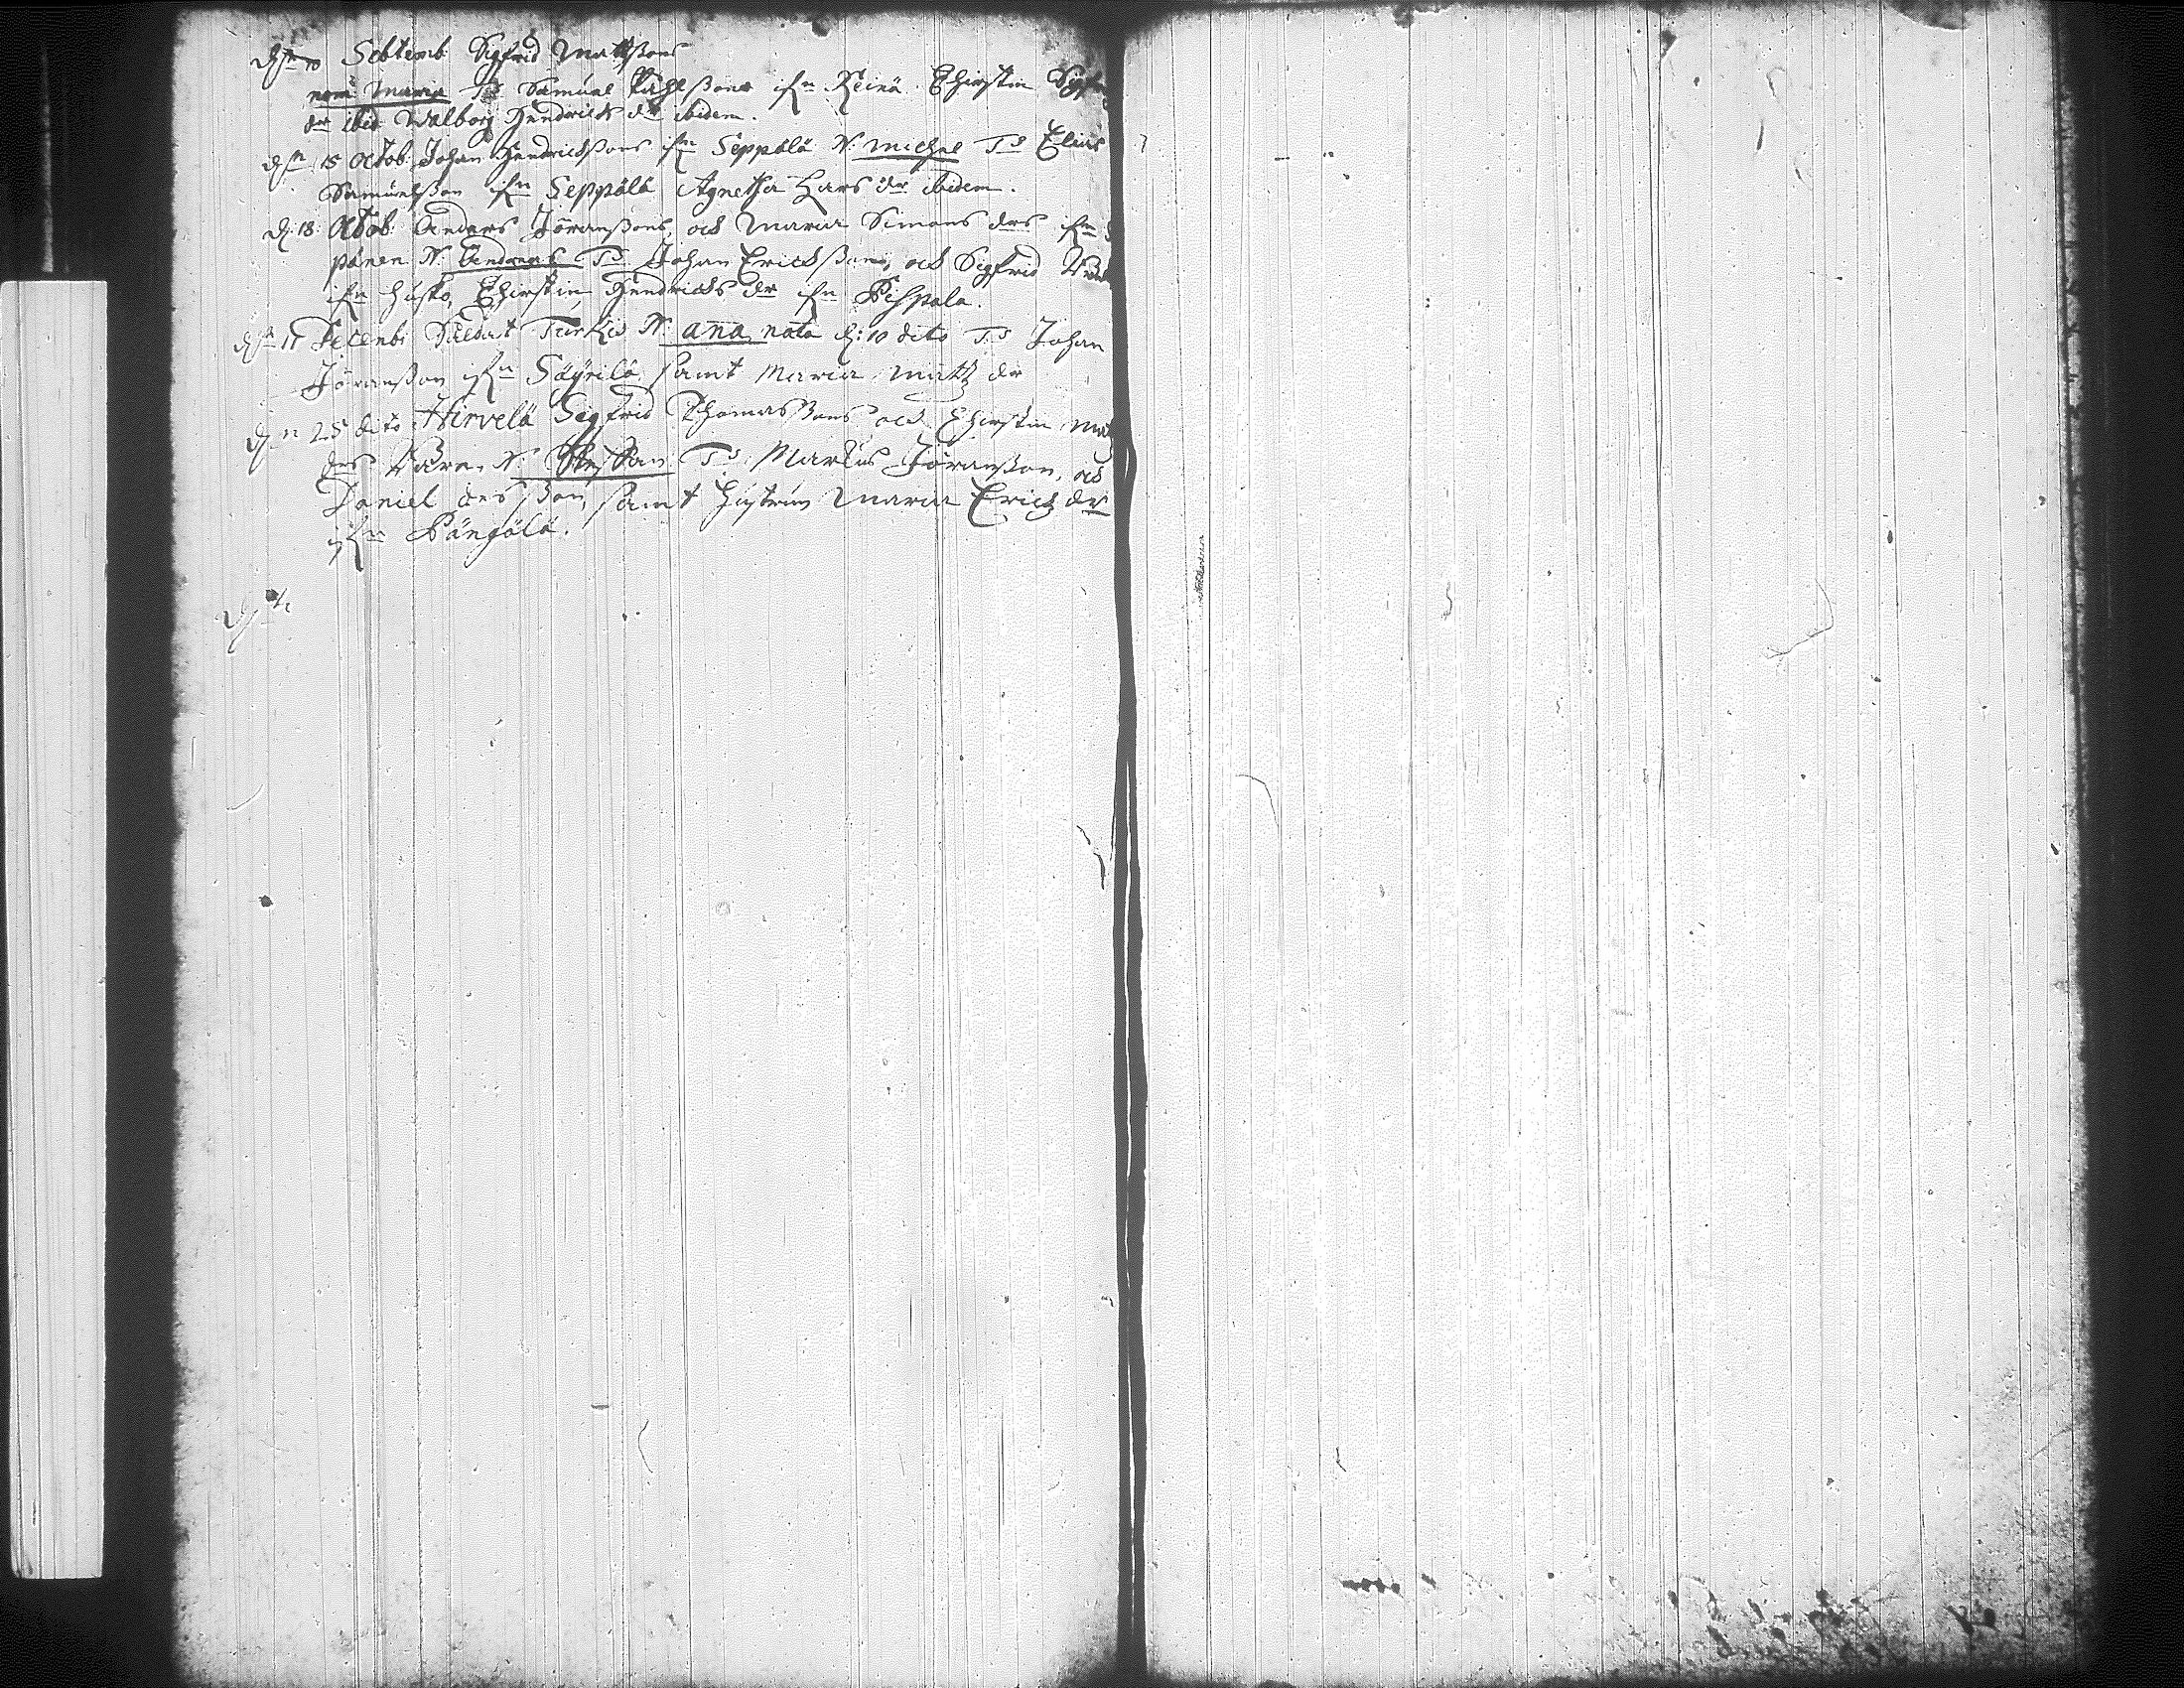 d. 10 Sebtemb. Sigfrid Mattßons
nom. Maria Ts Samuel Påhlßons ifrn Keinä Chirstin Sigf
dr ibid. Walborg Hendricks dr ibidem.
d. 15 Octob. Johan Hendrickßons ifrn Seppälä N. Michel Ts Elias
Samuelßon ifrn Seppälä Agnetha Lars dr ibidem.
d. 18. Octob. Anders Jöranßons, och Maria Simons drs ifrn
pänen N. Andreas Ts Johan Erickßons, och Sigfrid
ifrn Husko, Chirstin Hendricks dr ifrn Pispala.
d. 17 Decemb: Såldat Turkis N. ana nata d: 10 dito Ts Johan
Jöranßon ifrn Säyrilä, samt Maria Mattz dr
d. 25 dito Hirvelä Sigfrid Thomasßons och Chirstin Mat
drs Barn N. Steffan Ts Markus Jöranßon, och
Daniel des ßon, samt hustrun Maria Erichz dr
ifrn Pängälä.